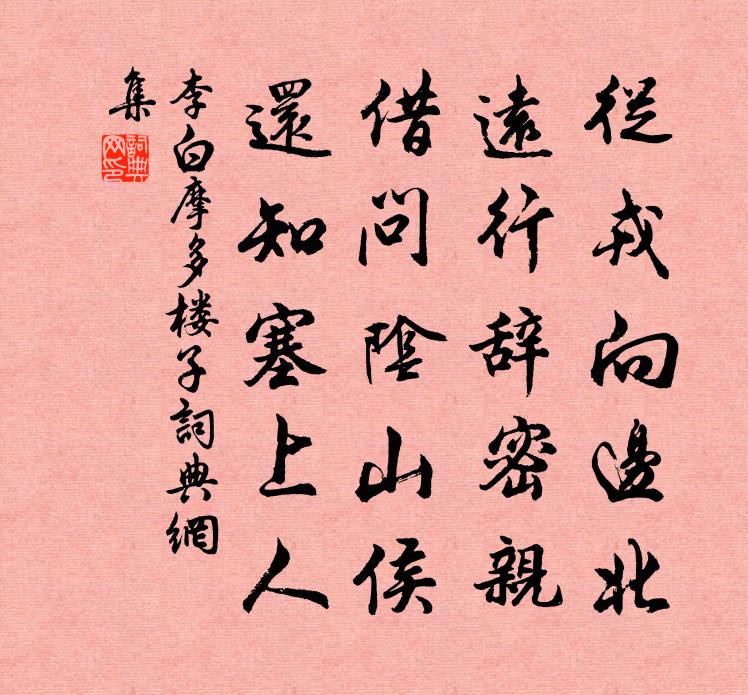 從戎向邊北
遠行辞密親
借問陰山侯
還知塞上人
李白摩多楼子詞典網
集
詞典
网印